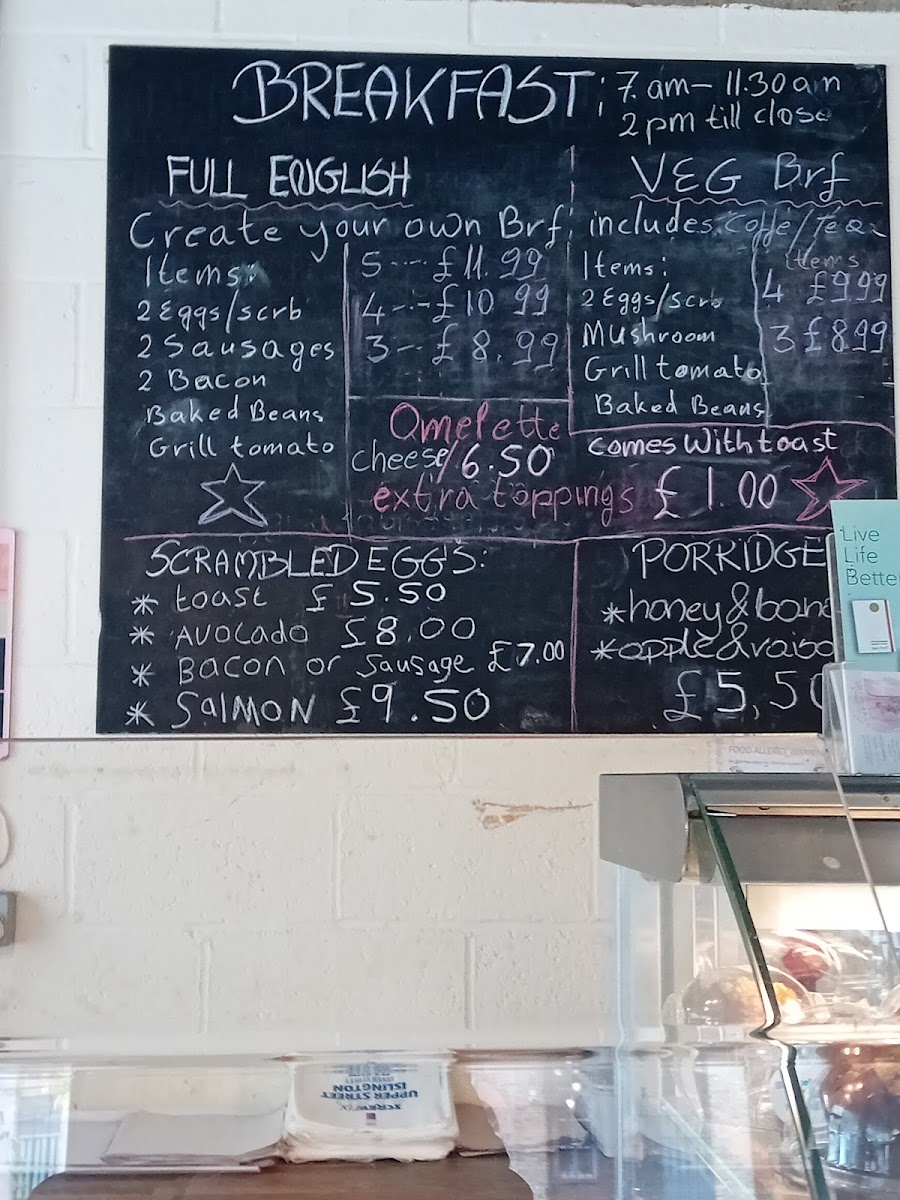 BREAKFAST: 7. am - 11.30 am
2 pm till close
FULL ENGLISH
VEG Brf
Create your own Brf, includes Coffe/Tea
Items:
2 Eggs/scrb
2 Sausages
2 Bacon
Baked Beans
Grill tomato
5 --- £11.99
4 --- £10 99
3 -- £ 8.99
Items:
2 Eggs/scrb
Mushroom
Grill tomato
Baked Beans
items
4 £9 99
3 £8 99
comes with toast
Omelette
cheese/6.50
extra toppings £1.00
SCRAMBLED EGGS:
* toast £5.50
* AVOCADO £8.00
* BACON or Sausage £7.00
* SALMON £9.50
PORRIDGE
* honey & bana
* apple & raiso
£5,50
Live
Life
Better
FOOD ALLERGY
SCREWFIX
UPPER STREET
ISLINGTON